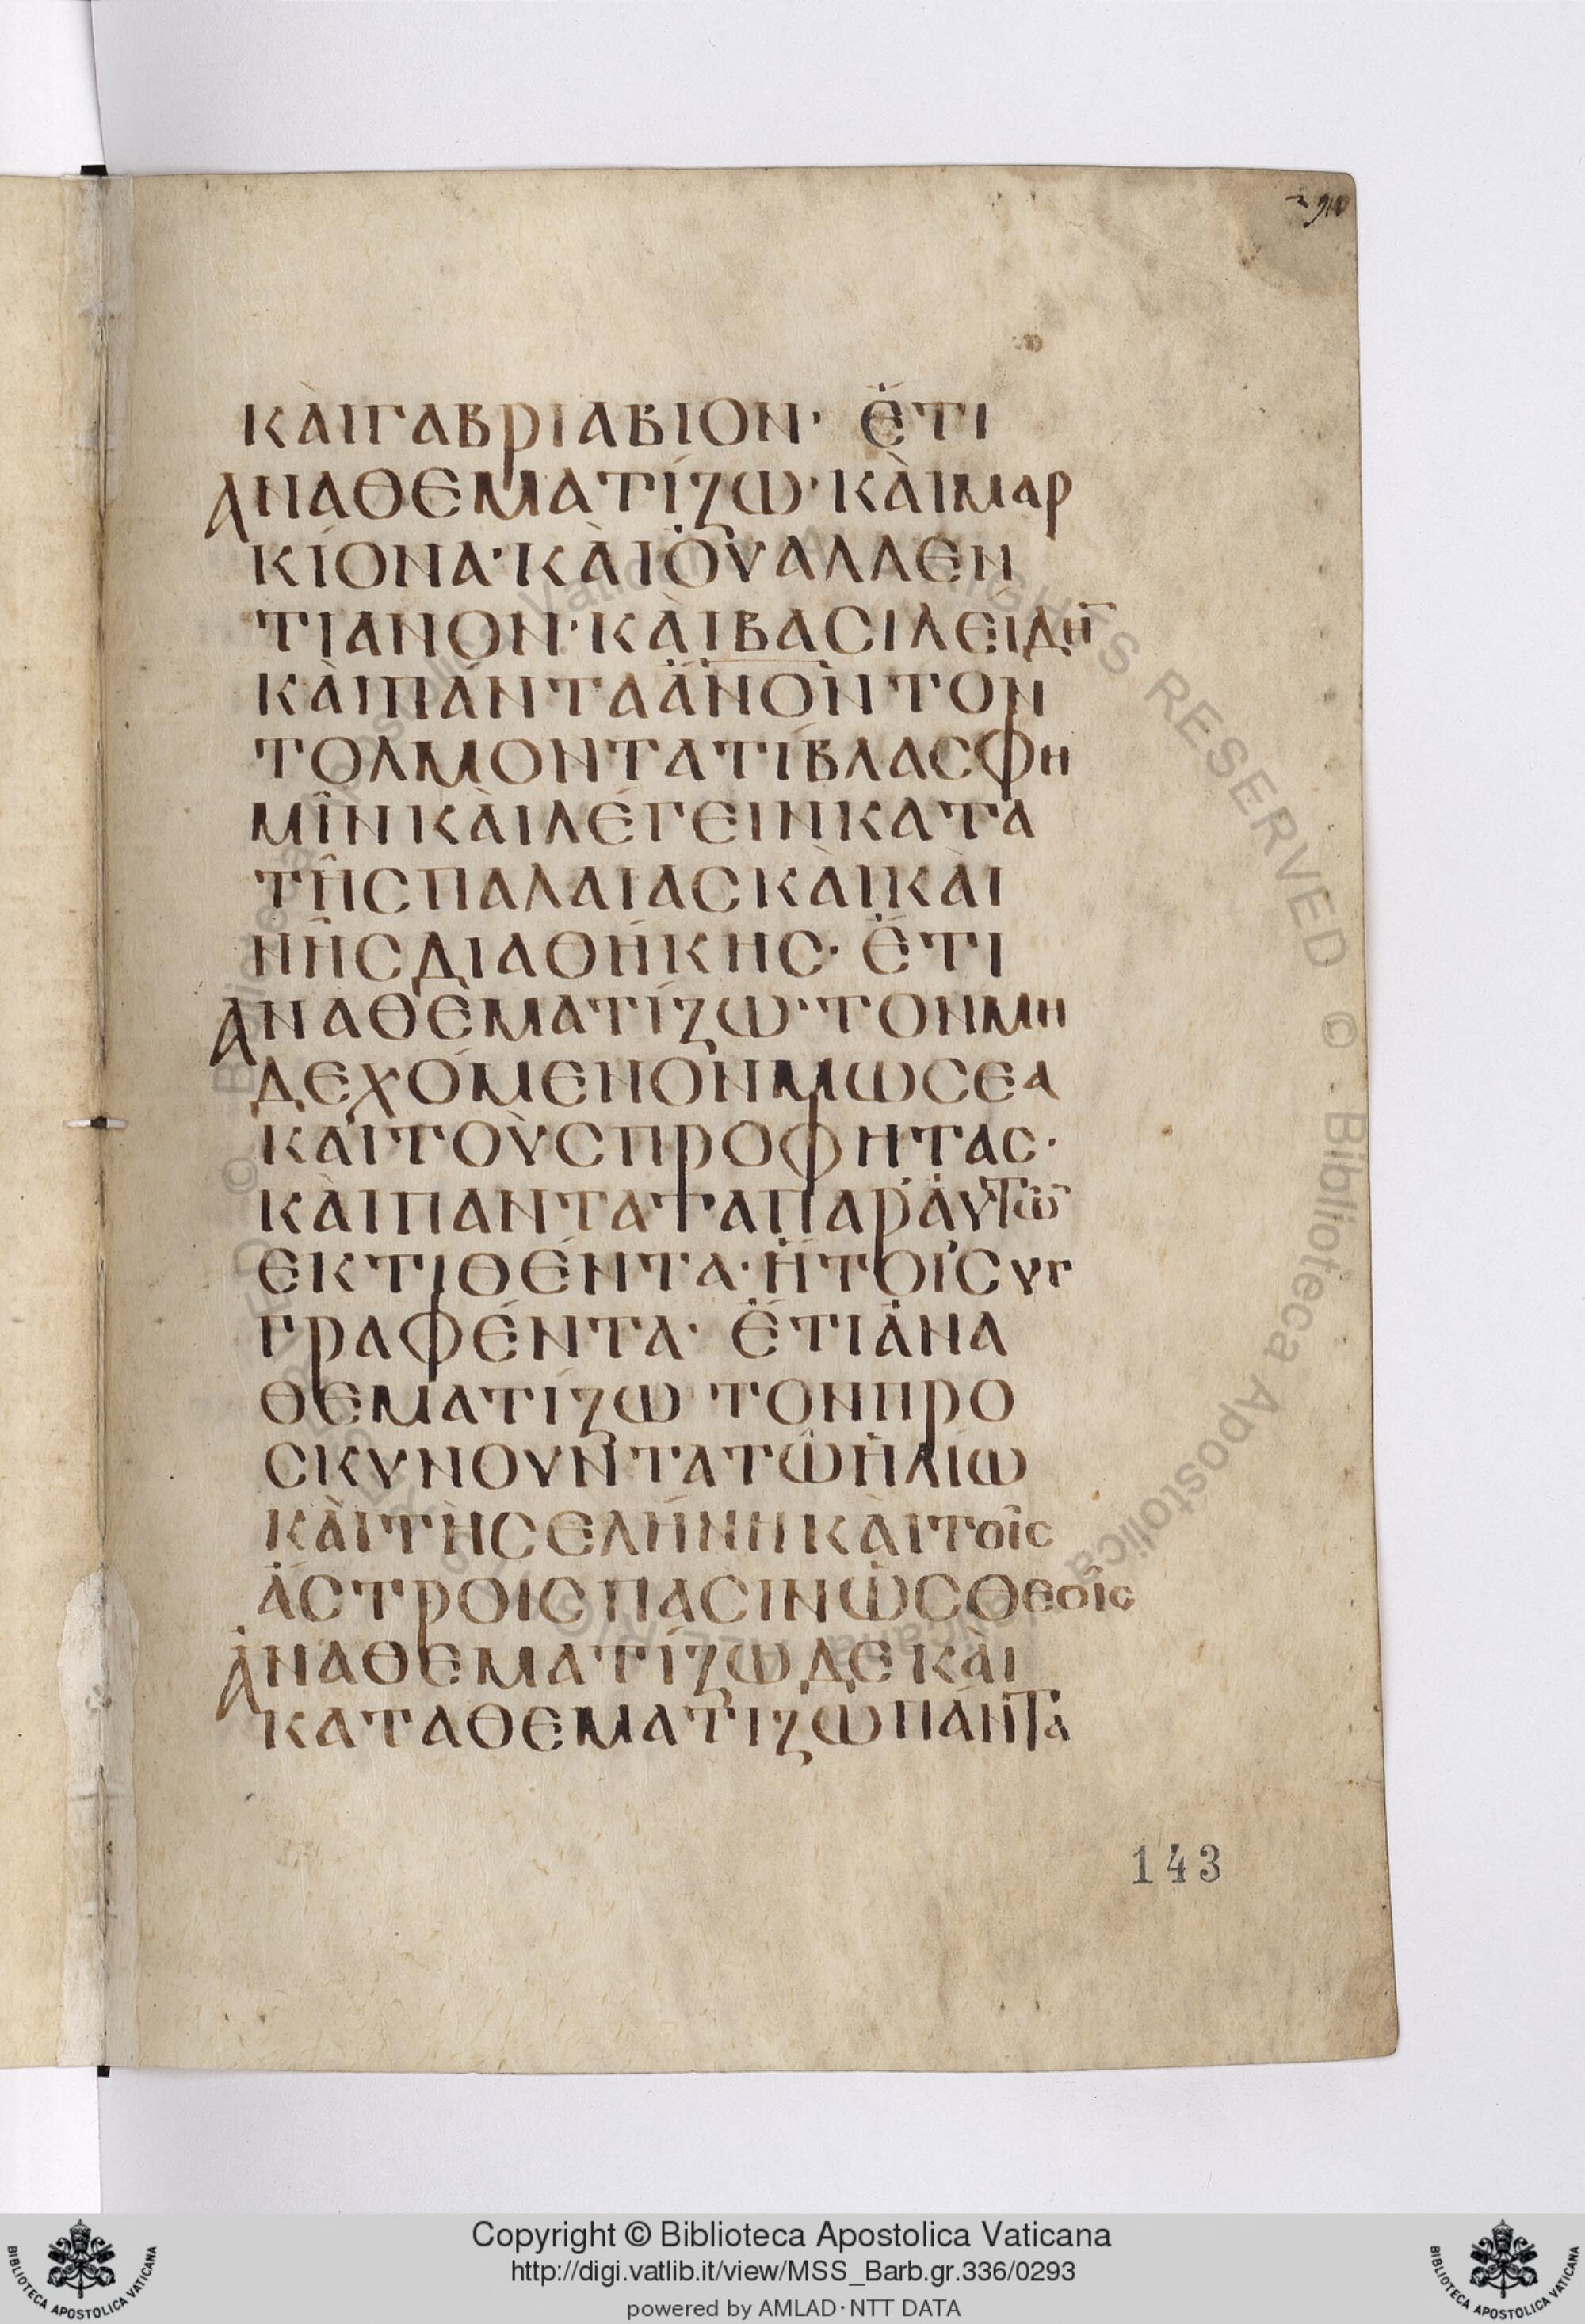 ΚᾺΙΓΑΒΡΙΑΒΙΟΝ· Ἔ́ΤΙ
ΑΝΑΘΕΜΑΤΊΖΩ· ΚᾺΙΜΑΡ
ΚΊΟΝΑ· ΚᾺΙΟΥΑΛΛΕΝ
ΤΙΑΝΟΝ· ΚᾺΙΒΑΣΙΛΕΙΔΗ̄
ΚᾺΙΠΆΝΤΑΑ̅Ν̅Ο̅Ν̅ΤΟΝ
ΤΟΛΜΟΝΤΑΤΙΒΛΑΣΦΗ
ΜΙ͂ΝΚᾺΙΛΈΓΕΙΝΚΑΤΑ
ΤΗ͂ΣΠΑΛΑΙΑΣΚᾺΙΚΑΙ
ΝΗ͂ΣΔΙΑΘΉΚΗΣ· ἜΤΙ
ΑΝΑΘΕΜΑΤΊΖΩ· ΤΟΝΜΗ
ΔΕΧΌΜΕΝΟΝΜΩΣΕΑ
ΚᾺΙΤΟῪΣΠΡΟΦΗΤΑΣ·
ΚᾺΙΠΑΝΤΑΤΑΠΑΡΑΥΤΩ̄
ΕΚΤΙΘΈΝΤΑ· ἬΤΟΙΣΥΓ
ΓΡΑΦΈΝΤΑ· ἜΤΙἈΝΑ
ΘΕΜΑΤΊΖΩ ΤΟΝΠΡΟ
ΣΚΥΝΟΥΝΤΑΤΩ͂ΗΛΊΩ
ΚᾺΙΤῊΣΕΛΉΝΗΚᾺΙΤΟΙ͂Σ
ἈΣΤΡΟΙΣΠΑΣΙΝὩΣΘΕΟΙ͂Σ
ἈΝΑΘΕΜΑΤΊΖΩΔΕΚᾺΙ
ΚΑΤΑΘΕΜΑΤΙΖΩΠΆΝΤΑ
143
Copyright © Biblioteca Apostolica Vaticana
http://digi.vatlib.it/view/MSS_Barb.gr.336/0293
powered by AMLAD·NTT DATA
BIBLIOTECA APOSTOLICA VATICANA
BIBLIOTECA APOSTOLICA VATICANA